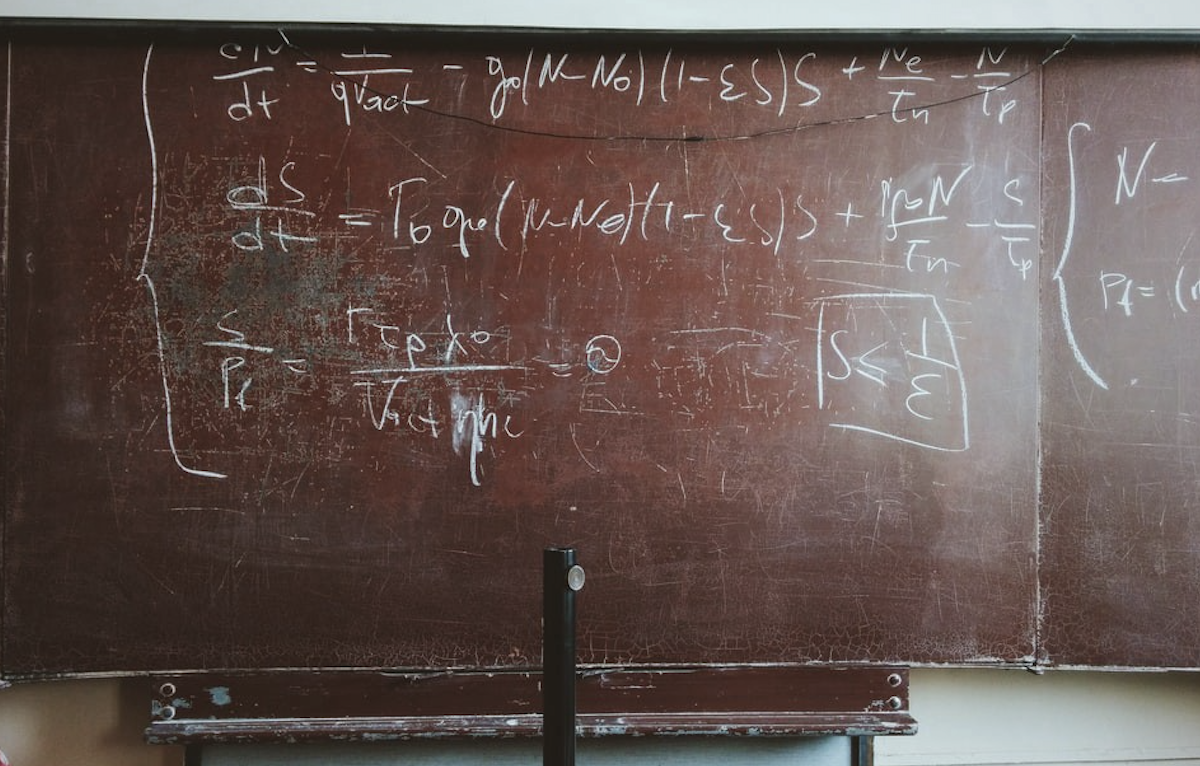 dN/dt = I/qVact - g₀(N-N₀)(1-εS)S + Ne/τn - N/τp
dS/dt = Γb g₀(N-N₀)(1-εS)S + N/τn - S/τp
S/Pf = Γτpλ₀/Vact ηhc =
S ≤ 1/ε
N -
Pf = (